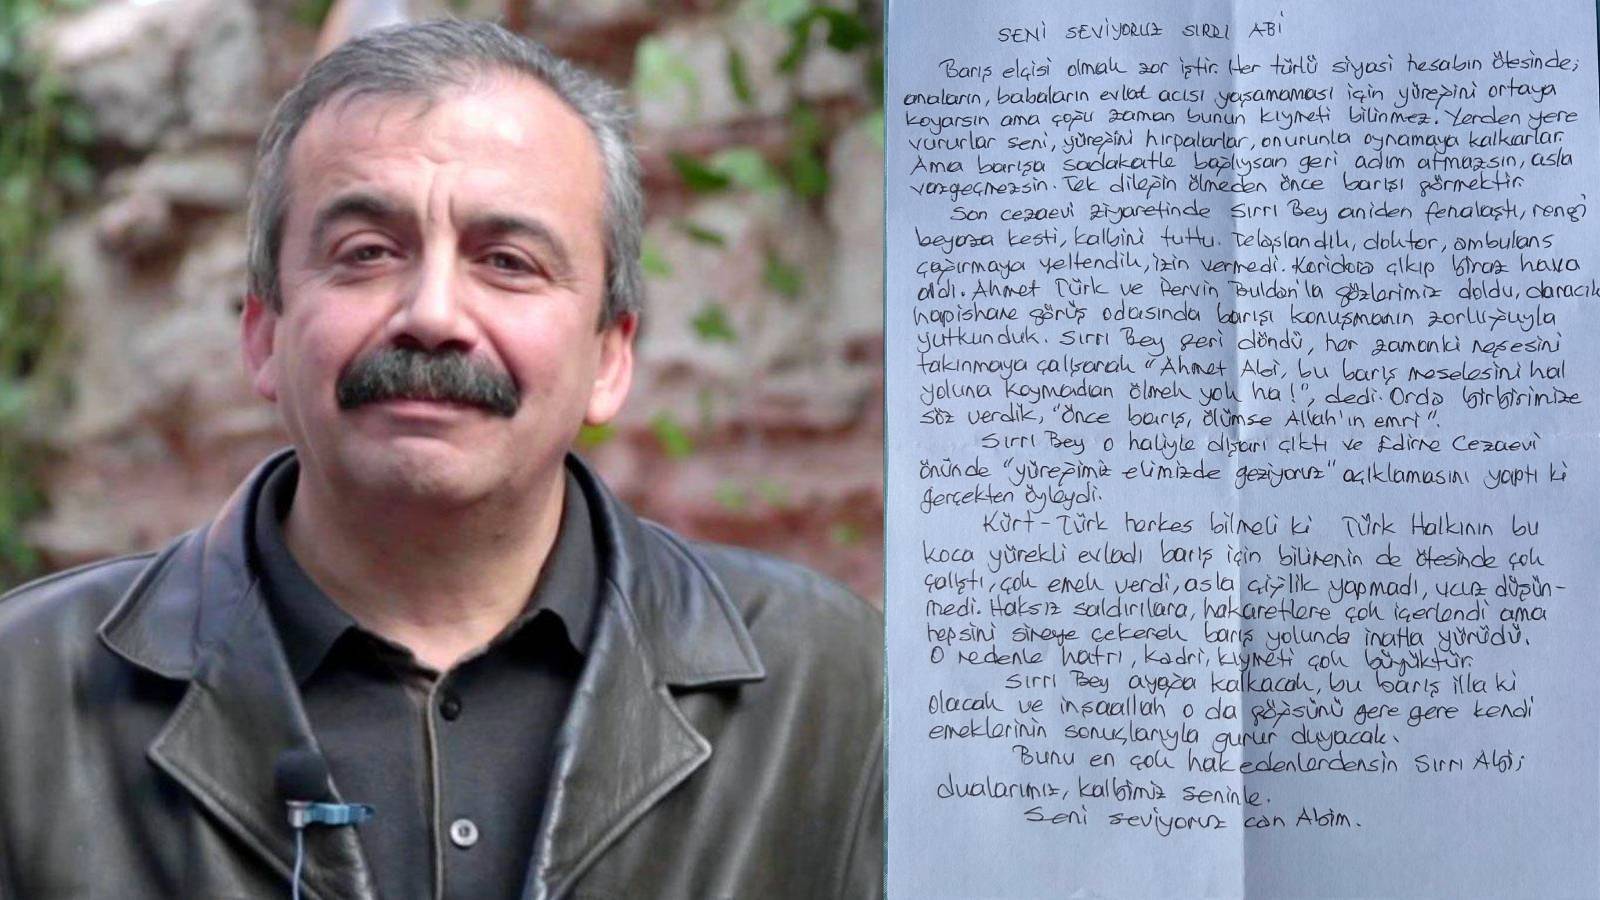 SENİ SEVİYORUZ SIRRI ABİ
Barış elçisi olmak zor iştir. Her türlü siyasi hesabın ötesinde;
anaların, babaların evlat acısı yaşamaması için yüreğini ortaya
koyarsın ama çoğu zaman bunun kıymeti bilinmez. Yerden yere
vururlar seni, yüreğini hırpalarlar, onurunla oynamaya kalkarlar.
Ama barışa sadakatle bağlıysan geri adım atmazsın, asla
vazgeçmezsin. Tek dileğin ölmeden önce barışı görmektir.
Son cezaevi ziyaretinde Sırrı Bey aniden fenalaştı, rengi
beyaza kesti, kalbini tuttu. Telaşlandık, doktor, ambulans
çağırmaya yeltendik, izin vermedi. Koridora çıkıp biraz hava
aldı. Ahmet Türk ve Pervin Buldan'la gözlerimiz doldu, daracık
hapishane görüş odasında barışı konuşmanın zorluğuyla
yutkunduk. Sırrı Bey geri döndü, her zamanki neşesini
takınmaya çalışarak "Ahmet Abi, bu barış meselesini hal
yoluna koymadan ölmek yok ha!", dedi. Orda birbirimize
söz verdik, "önce barış, ölümse Allah'ın emri".
Sırrı Bey o haliyle dışarı çıktı ve Edirne Cezaevi
önünde "yüreğimiz elimizde geziyoruz" açıklamasını yaptı ki
gerçekten öyleydi.
Kürt-Türk herkes bilmeli ki Türk Halkının bu
koca yürekli evladı barış için bilinenin de ötesinde çok
çalıştı, çok emek verdi, asla çiğlik yapmadı, ucuz düşün-
medi. Haksız saldırılara, hakaretlere çok içerlendi ama
hepsini sineye çekerek barış yolunda inatla yürüdü.
O nedenle hatrı, kadri, kıymeti çok büyüktür.
Sırrı Bey ayağa kalkacak, bu barış illa ki
olacak ve inşaallah o da göğsünü gere gere kendi
emeklerinin sonuçlarıyla gurur duyacak.
Bunu en çok hak edenlerdensin Sırrı Abi;
dualarımız, kalbimiz seninle.
Seni seviyoruz can Abim.